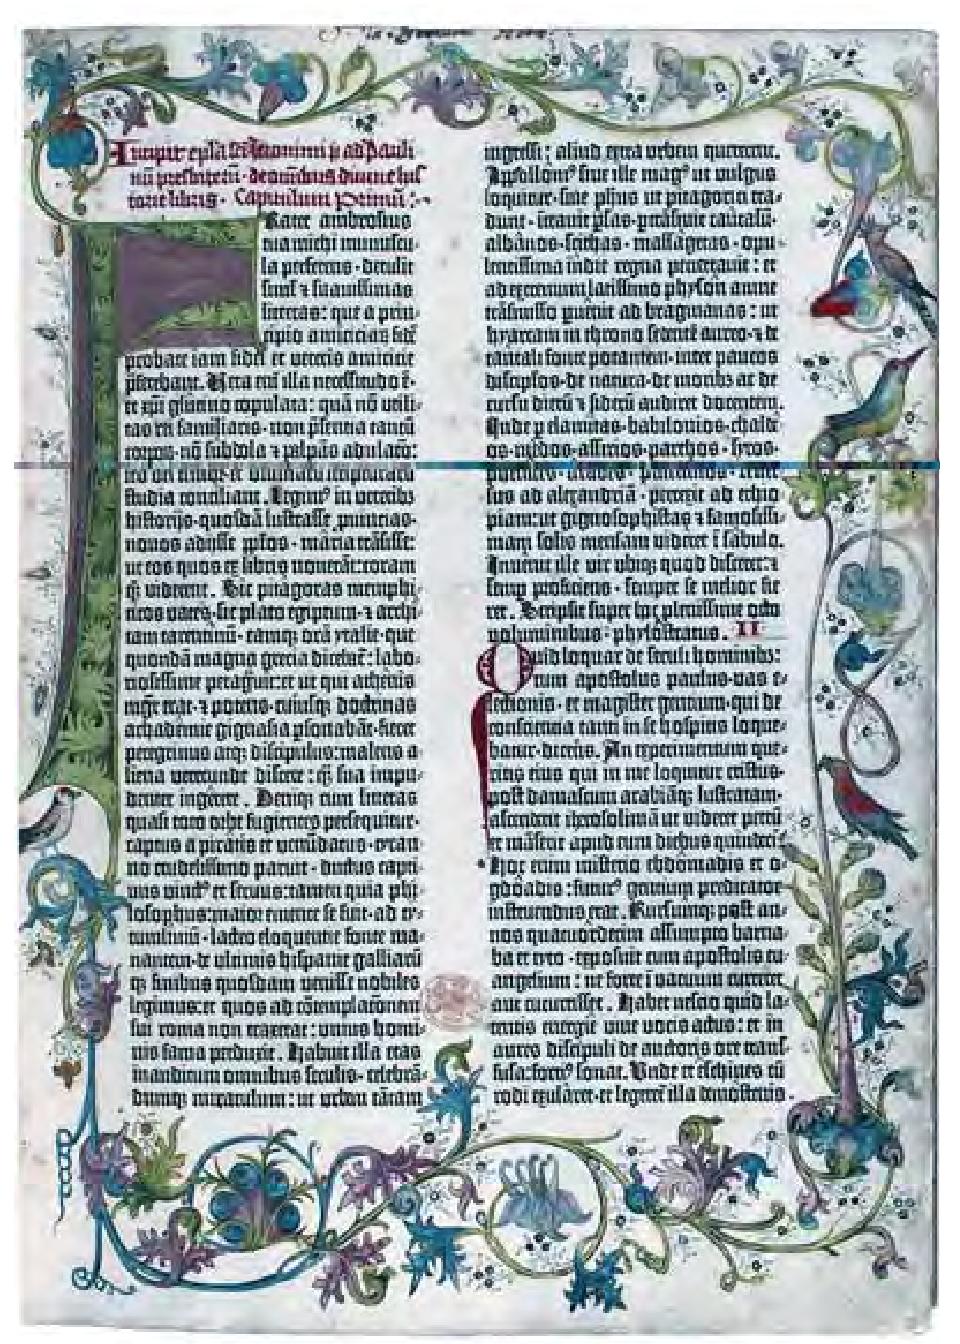 Incipit epla sci Iheronimi p̄ ad Pauli
nū presbiterū · de om̄ibus diuine his
torie libris · Capitulum primū:·
Frater ambrosius
tua michi munuscu
la perferens · detulit
simł ⁊ suauissimas
litteras: que a prin-
cipio amiciciaꝝ fidē
probate iam fidei et veteris amicicie
p̄ferebant. Uera eni illa necessitudo ē·
et xp̄i glutino copulata: quā nō utili-
tas rei familiaris · non p̄sentia tantū
corpoꝝ · nō subdola ⁊ palpās adulacō:
sed dei timor · et diuinaꝝ scripturaꝝ
studia conciliant. Legim⁹ in veteribꝫ
historijs · quosdā lustrasse ꝓuincias ·
nouos adijsse ppl̄os · maria trāsisse:
ut eos quos ex libris nouerāt: coram
qꝫ viderent. Sic pitagoras memphi-
ticos vates · sic plato egiptum · ⁊ archi-
tam tarentinū · eamqꝫ orā ytalie · que
quondā magna grecia dicebat̄: labo-
riosissime peragrauit: et ut qui athenis
mgr̄ erat · ⁊ potens · cuiusqꝫ doctrinas
achademie gignasia ꝑsonabāt · fieret
peregrinus atqꝫ discipulus: malens a-
liena verecunde discere: qꝫ sua impu-
denter ingerere. Deniqꝫ cum litteras
quasi toto orbe fugientes persequitur ·
captus a piratis et venūdatus · tyran-
no crudelissimo paruit · ductus capti-
uus vinct⁹ et seruus: tamen quia phi-
losophus: maior emente se fuit · ad ty-
tumliuiū · lacteo eloquentie fonte ma-
nantem · de ultimis hispanie galliarū
qꝫ finibus quosdam venisse nobiles
legimus: et quos ad cōtemplacōnem
sui roma non traxerat: unius homi-
nis fama perduxit. Habuit illa etas
inauditum omnibus seculis · celebrā-
dumqꝫ miraculum: ut urbem tantam
ingressi; aliud extra urbem quererent.
Apolloni⁹ siue ille mag⁹ ut vulgus
loquitur · siue ph̄us ut pitagorici tra-
dunt · ītrauit p̄sas · ptrāsiuit caucasū ·
albanos · scithas · massagetas · opu-
lentissima indie regna penetrauit: et
ad extremum latissimo physon amne
trāsmisso puenit ad bragmanas: ut
hyarcam in throno sedentē aureo · ⁊ de
tantali fonte potantem · inter paucos
discipłos · de natura · de moribꝫ ac de
cursu dierū ⁊ siderū audiret docentem.
Inde p elamitas · babilonios · chalde
os · medos · assirios · parthos · syros ·
phenices · arabes · palestinos · reuer
sus ad alexandriā · perrexit ad ethio
piam: ut gignosophistas ⁊ famosissi-
mam solis mensam videret ī sabulo.
Inuenit ille vir ubiqꝫ quod disceret: ⁊
semp proficiens · semper se melior fie
ret. Scripsit super hoc plenissime octo
voluminibus · phylostratus. II
Quid loquar de seculi hominibꝫ:
cum apostolus paulus · vas e-
lectionis · et magister gentium · qui de
consciencia tanti in se hospitis loque-
batur · dicens. An experimentum que-
ritis eius qui in me loquitur cristus ·
Post damascum arabiāqꝫ lustratam ·
ascenderit iherosolimā ut videret petrū
et māserit apud eum diebus quindecī ·
Hoc enim misterio ebdomadis et o-
gdoadis: futur⁹ gentium predicator
instruendus erat. Rursumqꝫ post an-
nos quatuordecim assumpto barna-
ba et tyto · exposuit cum apostolis eu-
angelium: ne forte ī vacuum curreret
aut cucurrisset. Habet nescio quid la-
tentis energie viue vocis actus: et in
aures discipuli de auctoris ore trans-
fusa: forti⁹ sonat. Unde et eschines cū
rodi exularet · et legeret̄ illa demostenis.